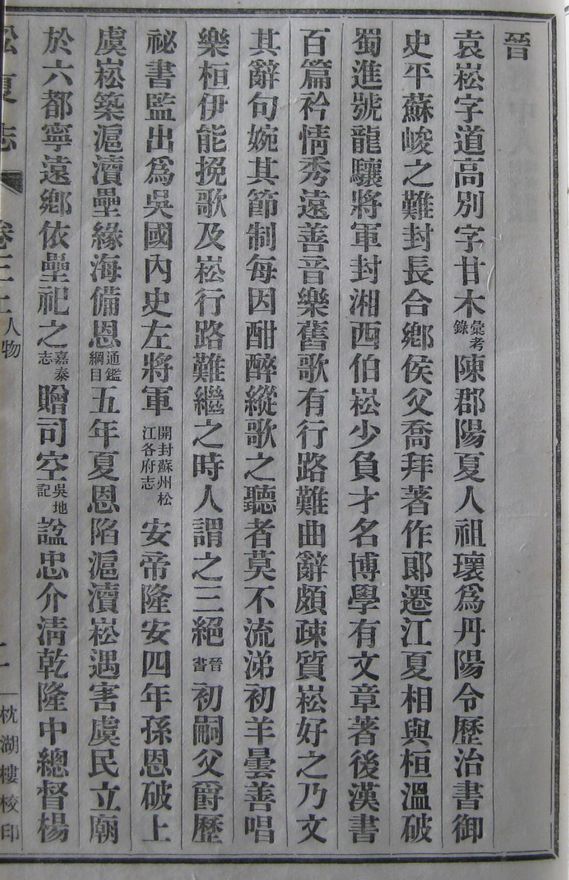 晉
袁崧字道高別字甘木彙考錄陳郡陽夏人祖瓌爲丹陽令歷治書御
史平蘇峻之難封長合鄉侯父喬拜著作郞遷江夏相與桓溫破
蜀進號龍驤將軍封湘西伯崧少負才名博學有文章著後漢書
百篇衿情秀遠善音樂舊歌有行路難曲辭頗疎質崧好之乃文
其辭句婉其節制每因酣醉縱歌之聽者莫不流涕初羊曇善唱
樂桓伊能挽歌及崧行路難繼之時人謂之三絕晉書初嗣父爵歷
祕書監出爲吳國內史左將軍開封蘇州松江各府志安帝隆安四年孫恩破上
虞崧築滬瀆壘緣海備恩通鑑綱目五年夏恩陷滬瀆崧遇害虞民立廟
於六都寧遠鄉依壘祀之嘉泰志贈司空吳地記諡忠介淸乾隆中總督楊
松夏志 卷三上 人物 二 枕湖樓校印